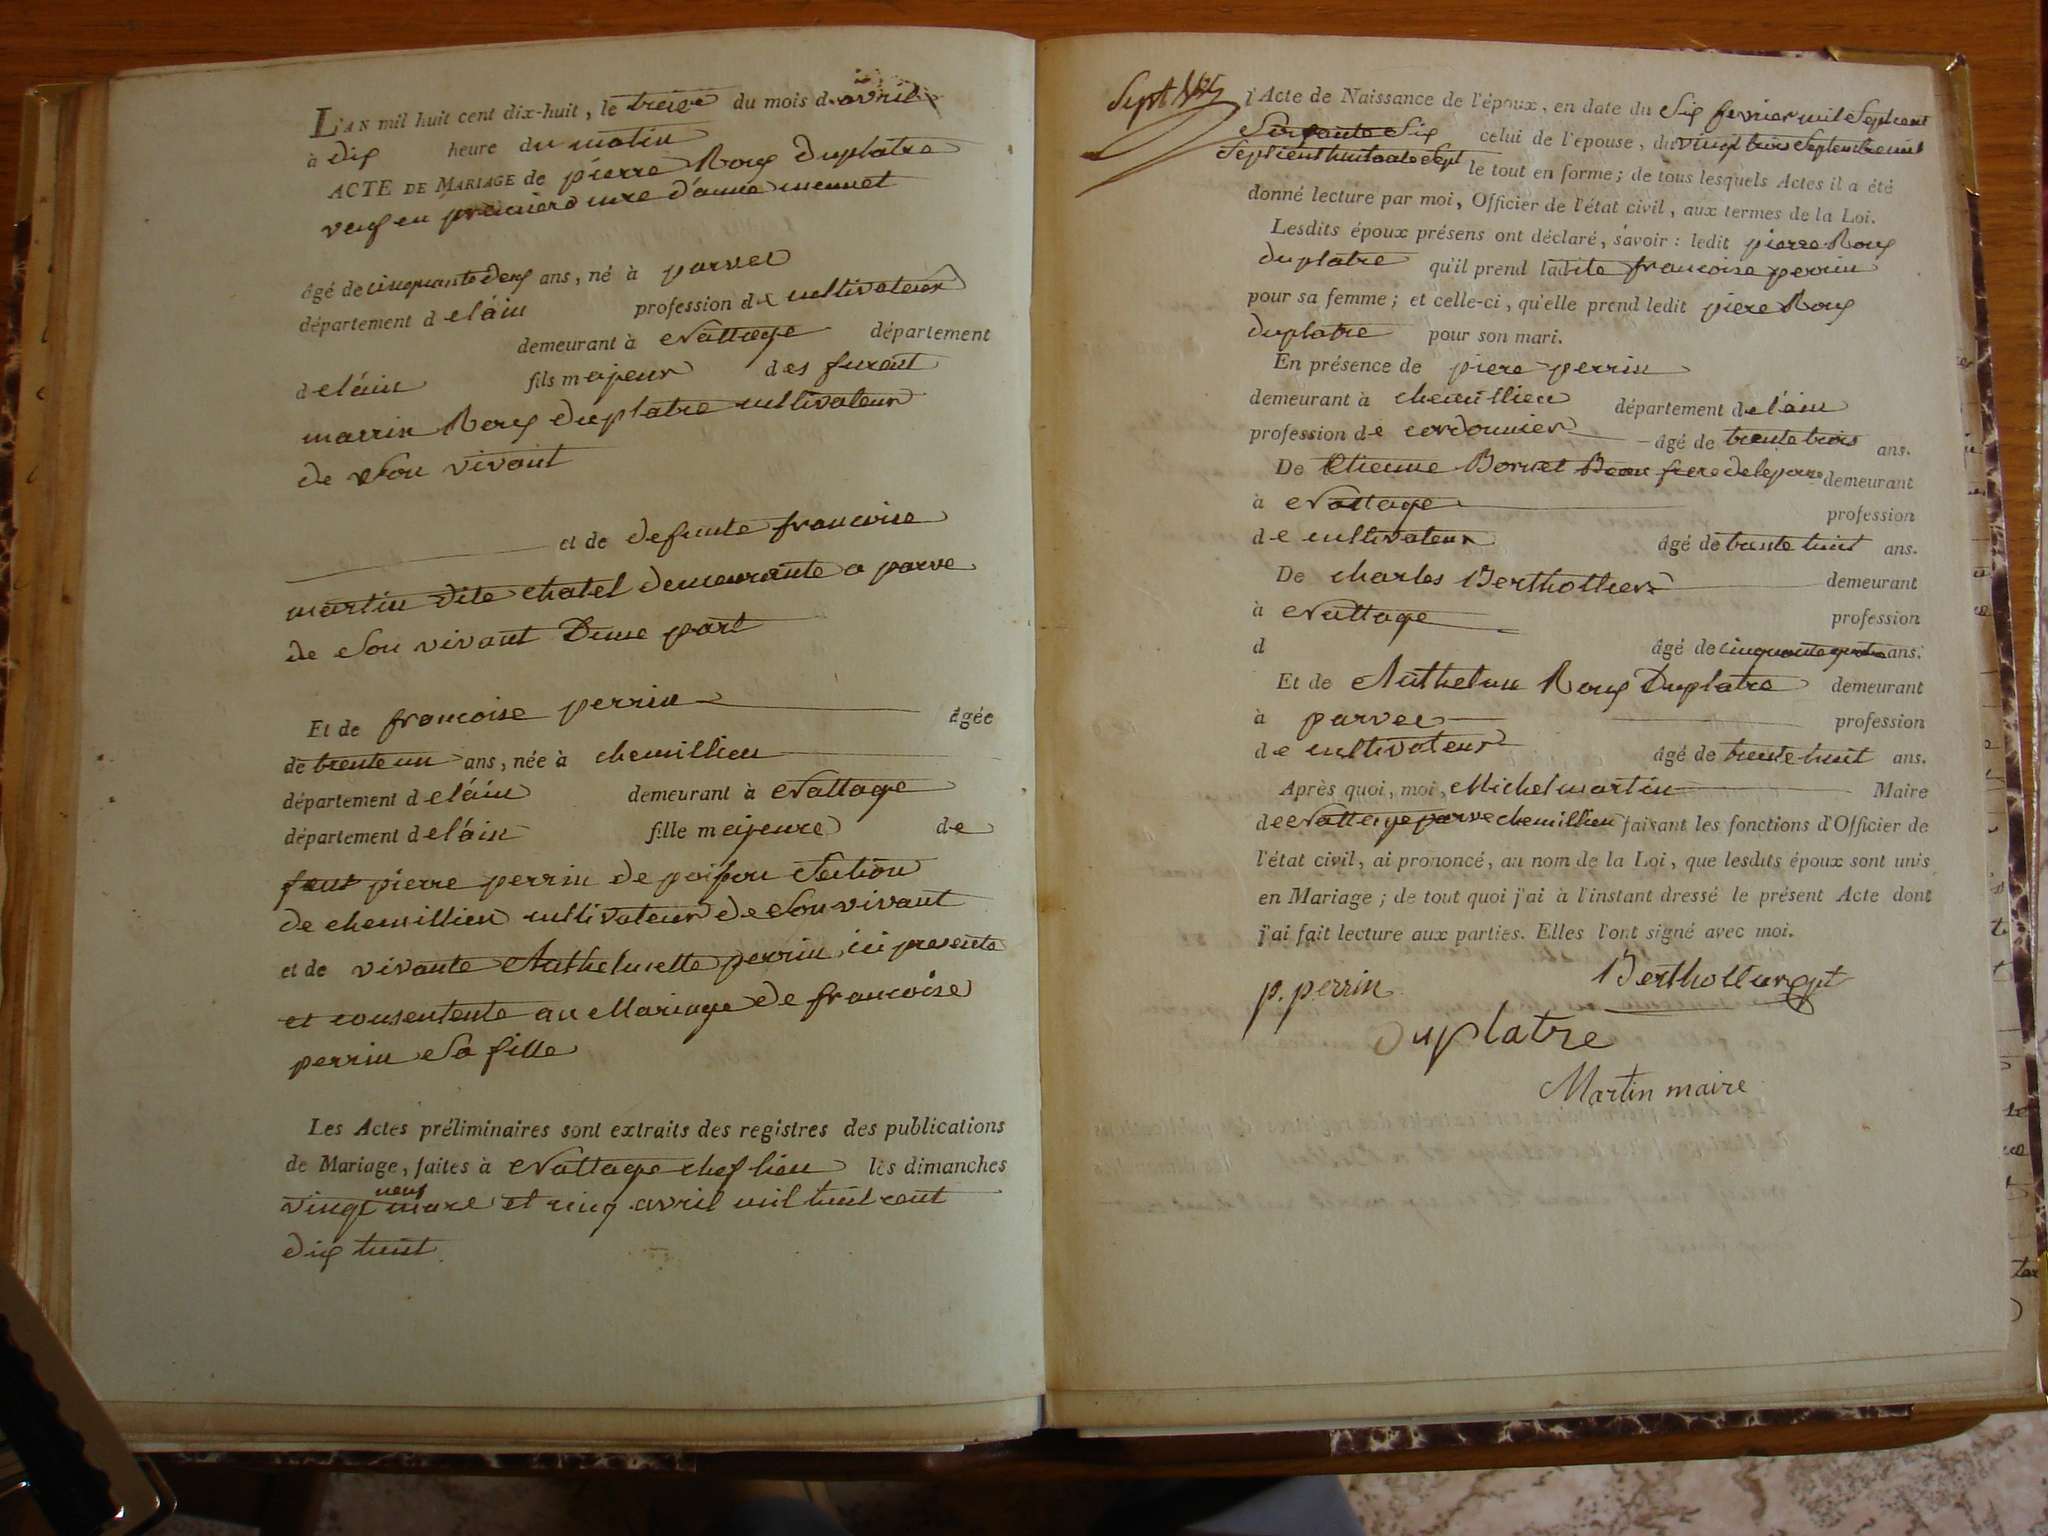 L'AN mil huit cent dix-huit, le treize du mois d avril
à dix heure du matin
ACTE DE MARIAGE de pierre Roux Duplatre
veuf en premier d'anne mennet
âgé de cinquante deux ans, né à parvel
département d el'áin profession de cultivateur
demeurant à Nattage département
d el'áin fils majeur des furent
marrin Roux Duplatre cultivateur
de Son vivant
et de defunte francoise
martin dite chatel demeurante a parve
de Son vivant Dune part
Et de francoise perrin âgée
de trente un ans, née à chemillieu
département d el'áin demeurant à Nattage
département d el'áin fille majeure de
feut pierre perrin de poisson Section
de chemillieu cultivateur de Son vivant
et de vivante Anthelmette perrin, ici presente
et consentente au Mariage de francoise
perrin Sa fille
Les Actes préliminaires sont extraits des registres des publications
de Mariage, faites à Nattage chef lieu les dimanches
neuf
vingt mare et cinq avril mil huit cent
dix huit
Sept
l'Acte de Naissance de l'époux, en date du Six fevrier mil Septcent
Soixante Six celui de l'épouse, du vingt trois Septembre mil
Septcent huitante Sept le tout en forme; de tous lesquels Actes il a été
donné lecture par moi, Officier de l'état civil, aux termes de la Loi.
Lesdits époux présens ont déclaré, savoir: ledit pierre Roux
duplatre qu'il prend ladite francoise perrin
pour sa femme; et celle-ci, qu'elle prend ledit piere Roux
duplatre pour son mari.
En présence de piere perrin
demeurant à chemillieu département de l'ain
profession de cordonnier âgé de trente trois ans.
De Etienne Bornet Beau frere de lepouse demeurant
à Nattage profession
de cultivateur âgé de trente huit ans.
De charles Berthollier demeurant
à Nattage profession
d âgé de cinquante quatre ans.
Et de Anthelme Roux Duplatre demeurant
à parvee profession
de cultivateur âgé de trente huit ans.
Après quoi, moi, Michel martin Maire
de Nattage parve chemillieu faisant les fonctions d'Officier de
l'état civil, ai prononcé, au nom de la Loi, que lesdits époux sont unis
en Mariage; de tout quoi j'ai à l'instant dressé le présent Acte dont
j'ai fait lecture aux parties. Elles l'ont signé avec moi.
p. perrin Berthollier
duplatre
Martin maire